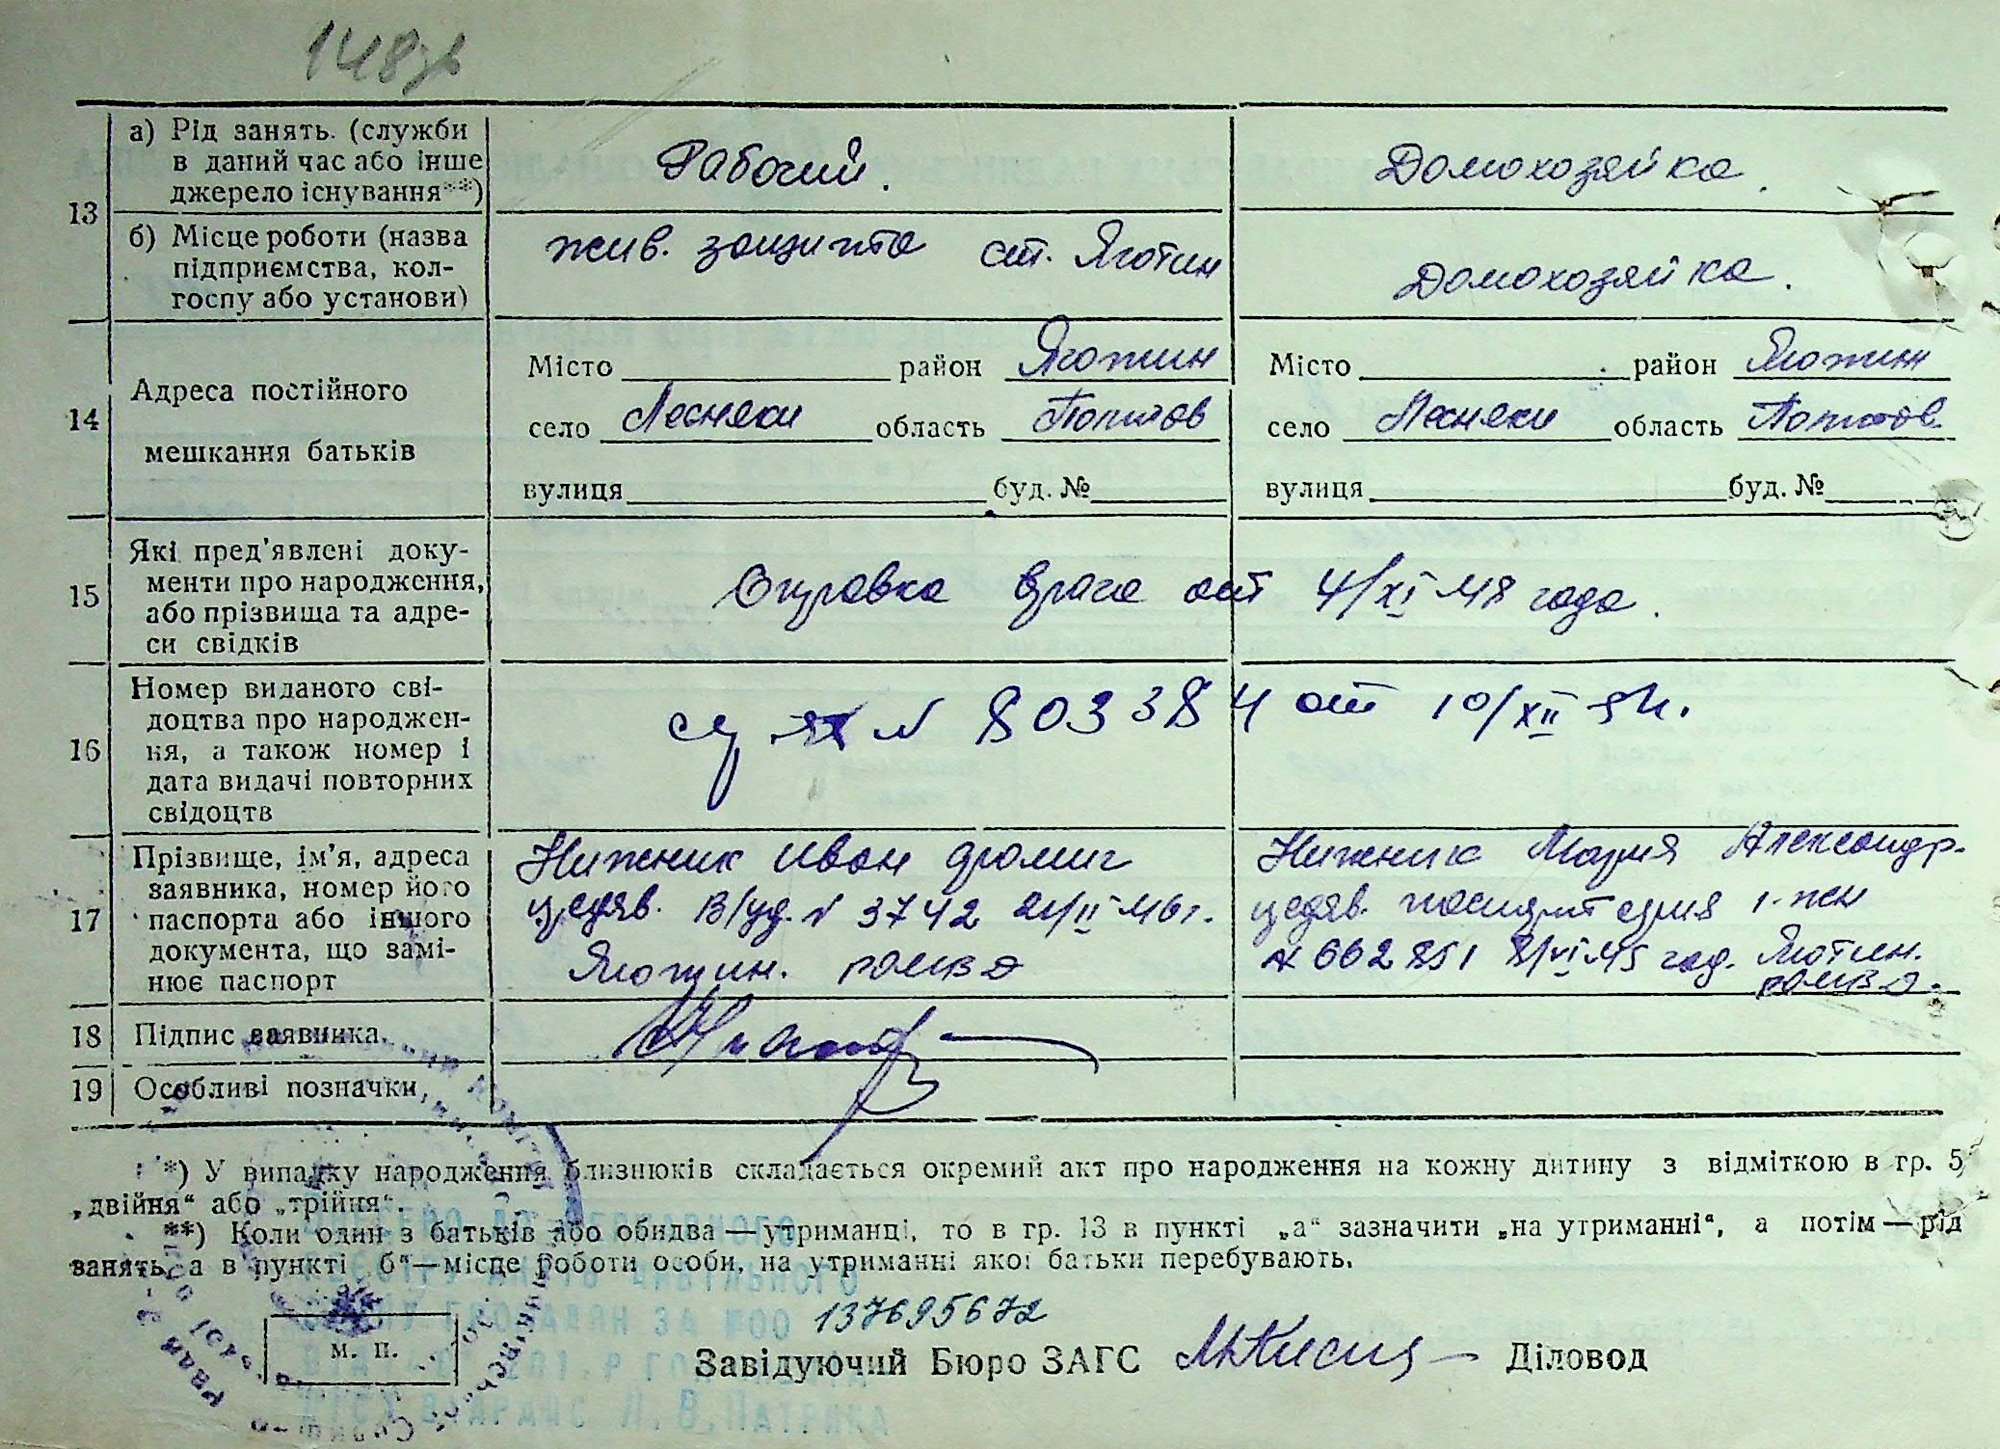 148зв
13
а) Рід занять (служби
в даний час або інше
джерело існування**)
Рабочий.
Домохозяйка.
б) Місце роботи (назва
підприємства, кол-
госпу або установи)
жив. защита ст. Яготин
Домохозяйка.
14
Адреса постійного
мешкання батьків
Місто район Яготин
село Лесняки область Полтов
вулиця буд. №
Місто район Яготин
село Лесняки область Полтов
вулиця буд. №
15
Які пред'явлені доку-
менти про народження,
або прізвища та адре-
си свідків
Справка врача от 4/XI-48 года.
16
Номер виданого сві-
доцтва про народжен-
ня, а також номер і
дата видачі повторних
свідоцтв
№ 803384 от 10/XII
17
Прізвище, ім'я, адреса
заявника, номер його
паспорта або іншого
документа, що замі-
нює паспорт
Нижник Иван
В/уд. № 3742 /II-46г.
Яготин.
Нижник Мария Александр.
серия
№ 662851 8/VI-45 год. Яготин.
18
Підпис заявника.
19
Особливі позначки,
*) У випадку народження близнюків складається окремий акт про народження на кожну дитину з відміткою в гр. 5
„двійня“ або „трійня“.
**) Коли один з батьків або обидва—утриманці, то в гр. 13 в пункті „а“ зазначити „на утриманні“, а потім—рід
занять, а в пункті б“—місце роботи особи, на утриманні якої батьки перебувають.
137695672
м. п.
Завідуючий Бюро ЗАГС Діловод